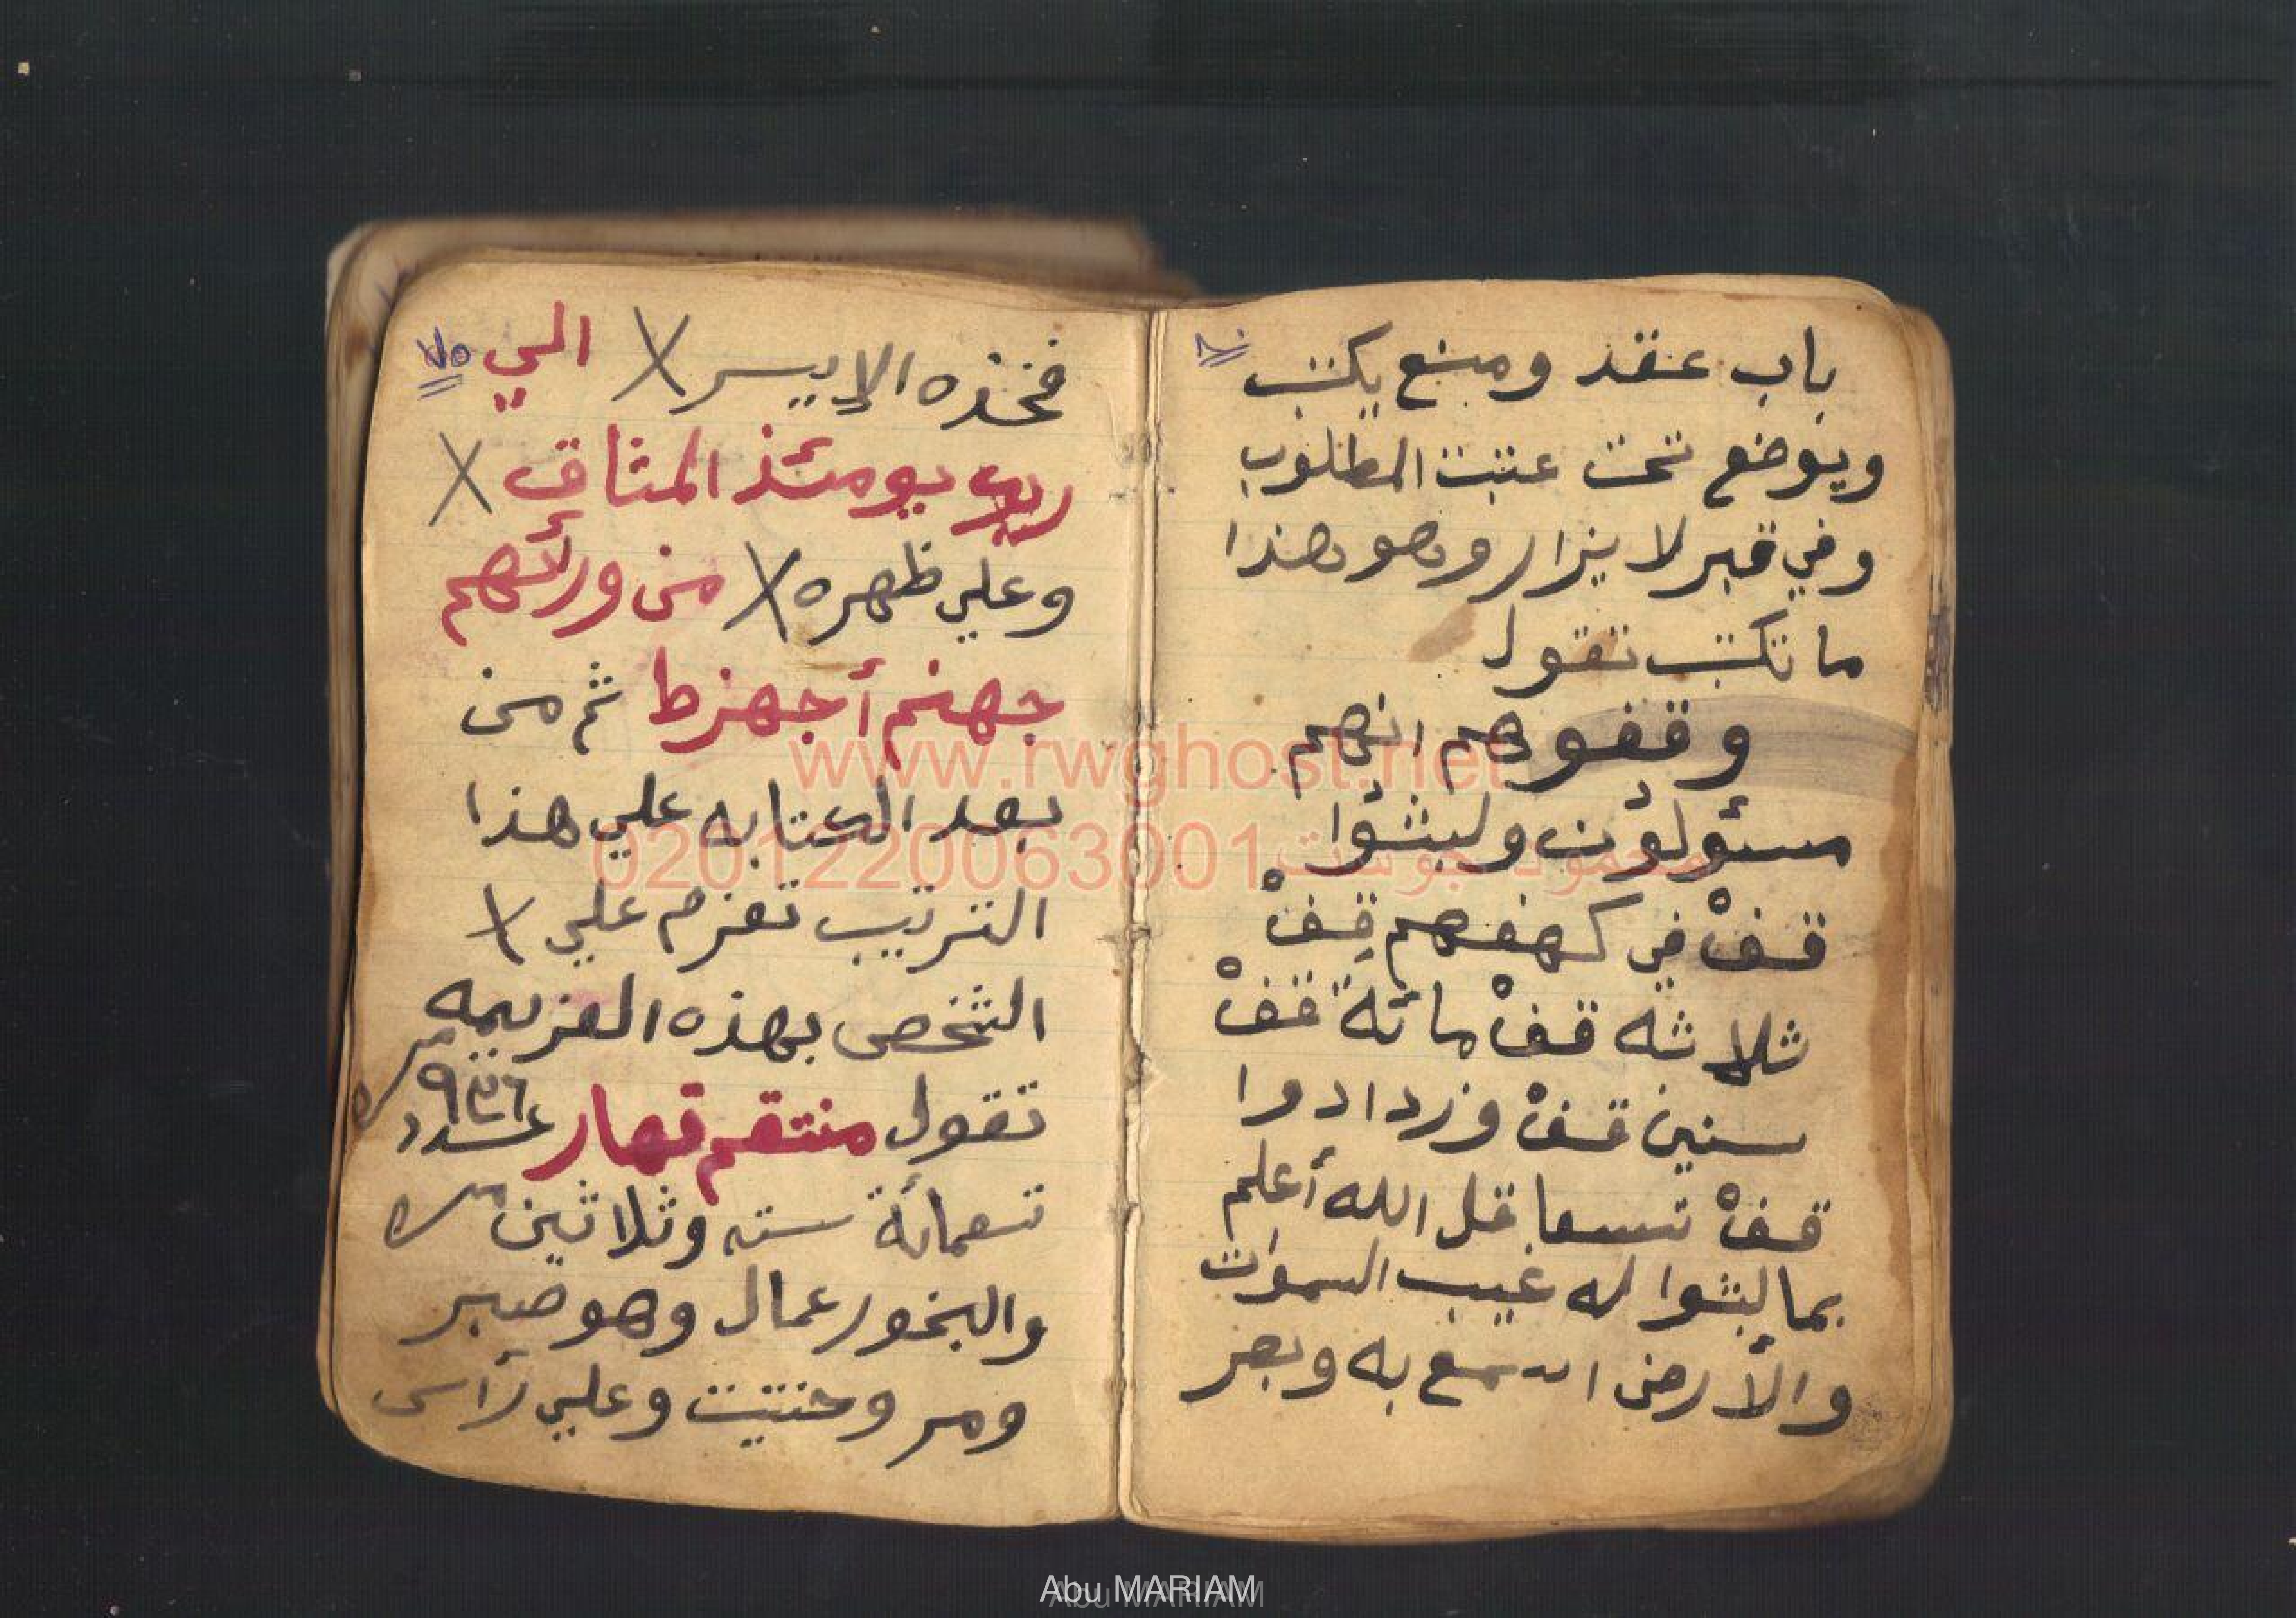 باب عقد ومنع يكتب
ويوضع تحت عتبت المطلوب
وفي قبر لا يزار وهو هذا
ما تكتب تقول
وقفوهم انهم
مسئولون ولبثوا
قفْ في كهفهم قفْ
ثلاثه قفْ مائة قفْ
سنين قفْ وزدادوا
قفْ تسعا قل الله أعلم
بما لبثوا له غيب السموات
والأرض اسمع به وبصر
فخذه الايسر X الي
ربك يومئذ المثاق X
وعلي ظهره X من ورآئهم
جهنم أجهزط ثم من
بعد الكتابه علي هذا
الترتيب تعزم علي X
الشخص بهذه العزيمه
تقول منتقم قهار عدد ٩٣٦ مره
تسعمائة سته وثلاثين مره
والبخور عمال وهو صبر
ومر وحنتيت وعلي رأس
www.rwghost.net
محمود جوست 0201220063001
Abu MARIAM